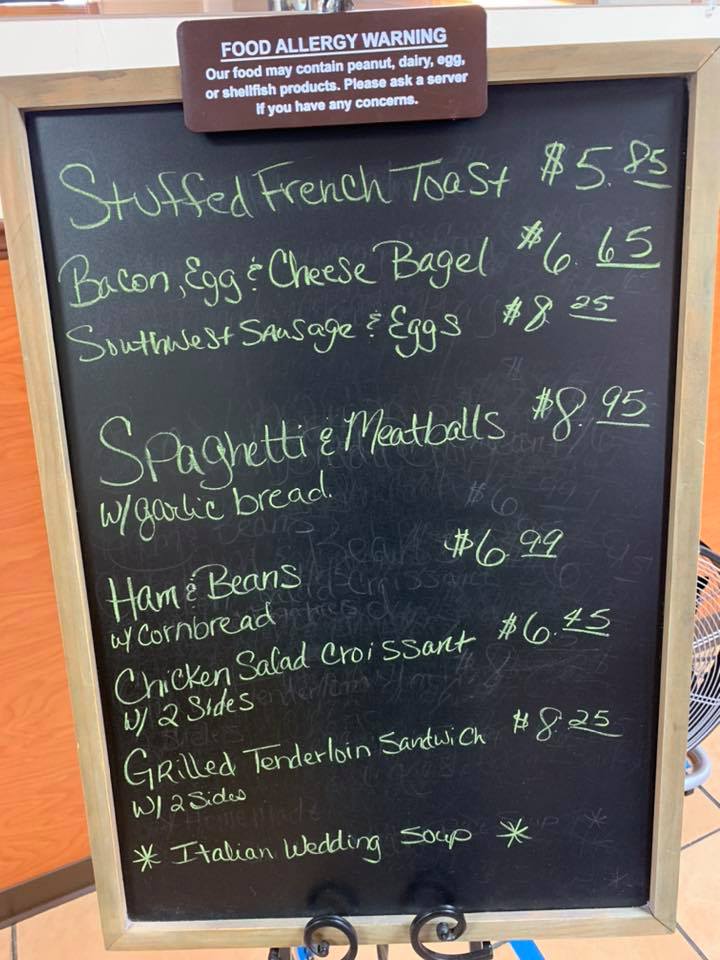 FOOD ALLERGY WARNING
Our food may contain peanut, dairy, egg,
or shellfish products. Please ask a server
if you have any concerns.
Stuffed French Toast $5.85
Bacon, Egg & Cheese Bagel $6.65
Southwest Sausage & Eggs $8.25
Spaghetti & Meatballs $8.95
w/garlic bread.
Ham & Beans $6.99
w/ Cornbread
Chicken Salad Croissant $6.45
w/ 2 Sides
Grilled Tenderloin Sandwich $8.25
w/ 2 Sides
* Italian Wedding Soup *